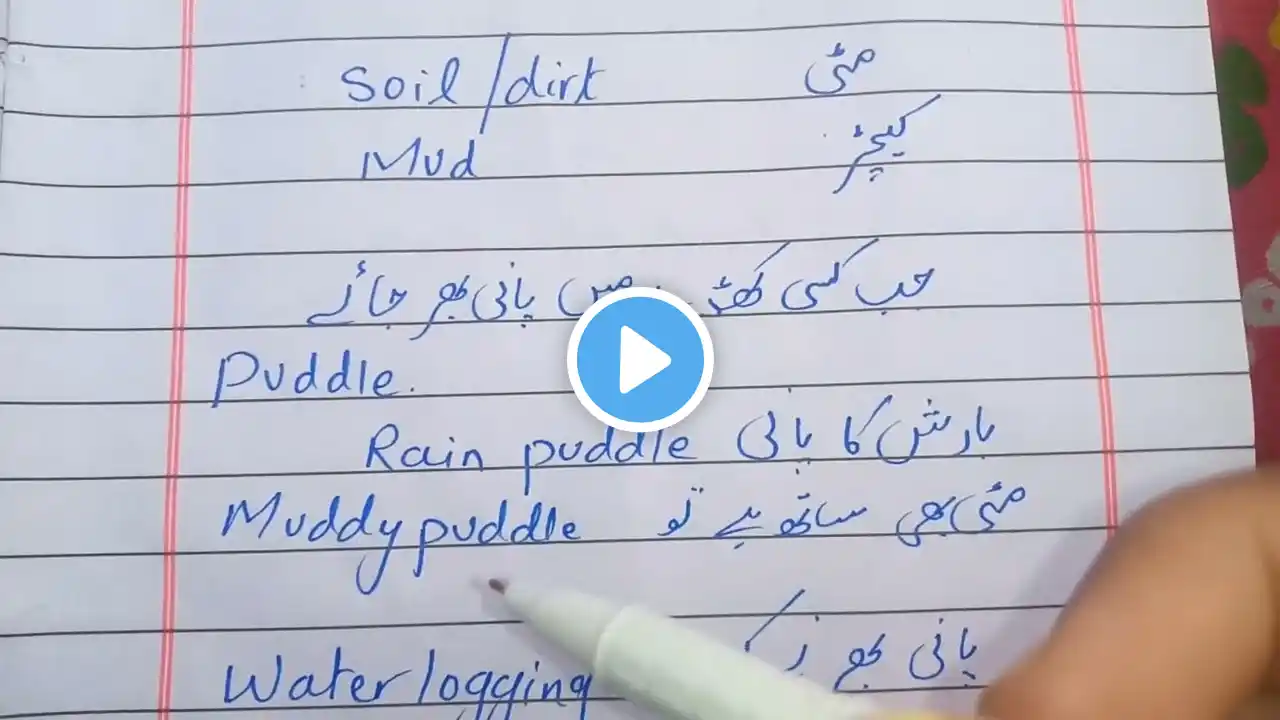 Soil/dirt مٹی
Mud کیچڑ
جب کسی کھڈ میں پانی بھر جائے
Puddle.
Rain puddle بارش کا پانی
Muddy puddle مٹی بھی ساتھ ہے تو
Water logging پانی بھر